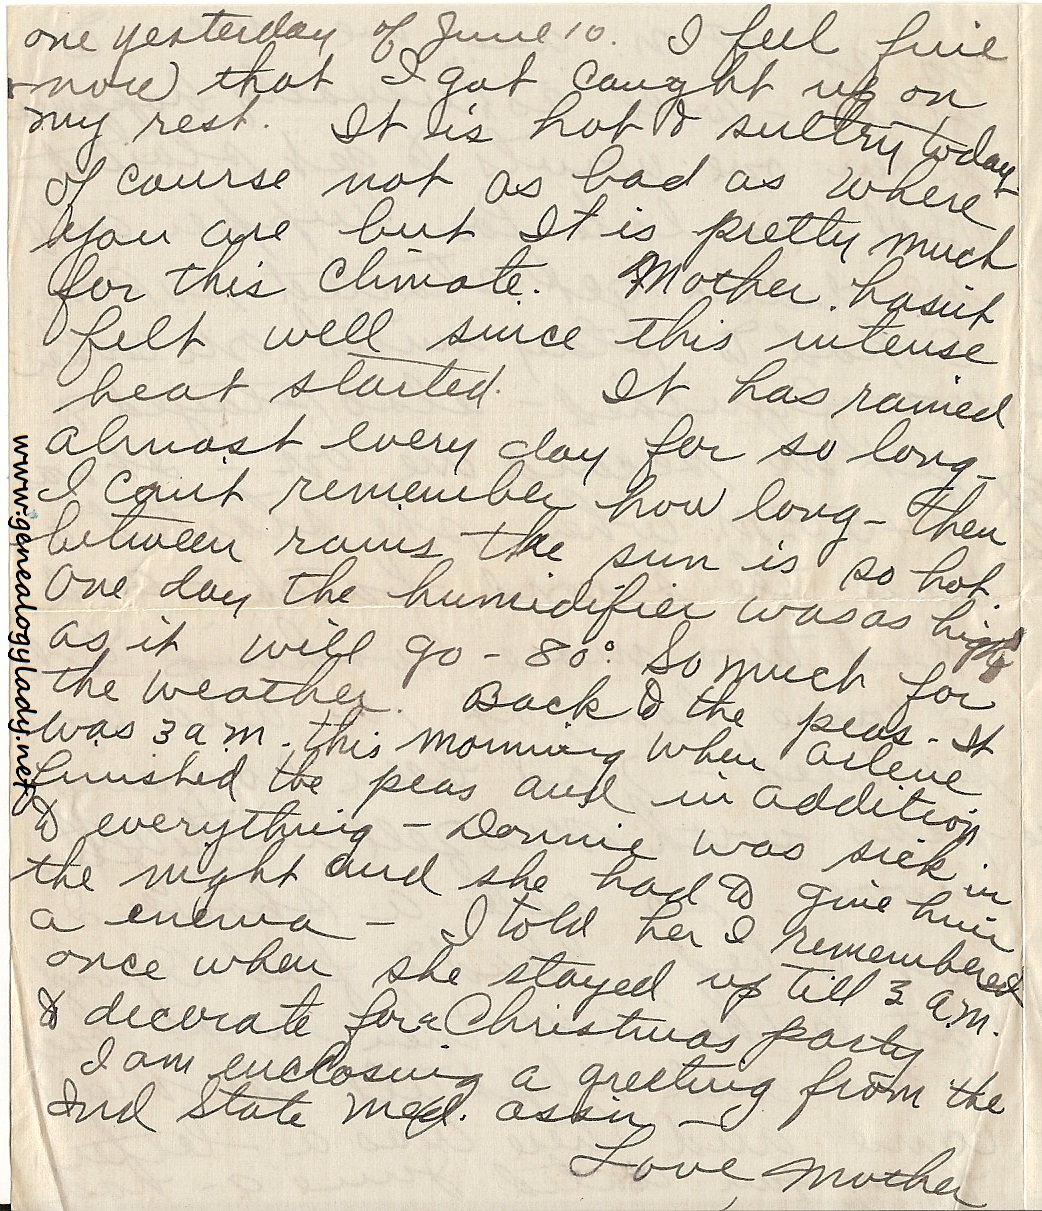 one yesterday of June 10. I feel fine
now that I got caught up on
my rest. It is hot & sultry today
of course not as bad as where
you are but It is pretty much
for this climate. Mother hasn't
felt well since this intense
heat started. It has rained
almost every day for so long -
I can't remember how long - then
between rains the sun is so hot.
One day the humidifier was as high
as it will go - 80°. So much for
the weather. Back to the peas - It
was 3 a m. this morning when Arlene
finished the peas and in addition
to everything - Donnie was sick in
the night and she had to give him
a enema - I told her I remembered
once when she stayed up till 3 a.m.
to decorate for a Christmas party
I am enclosing a greeting from the
Ind State Med. assn -
Love Mother
www.genealogylady.net